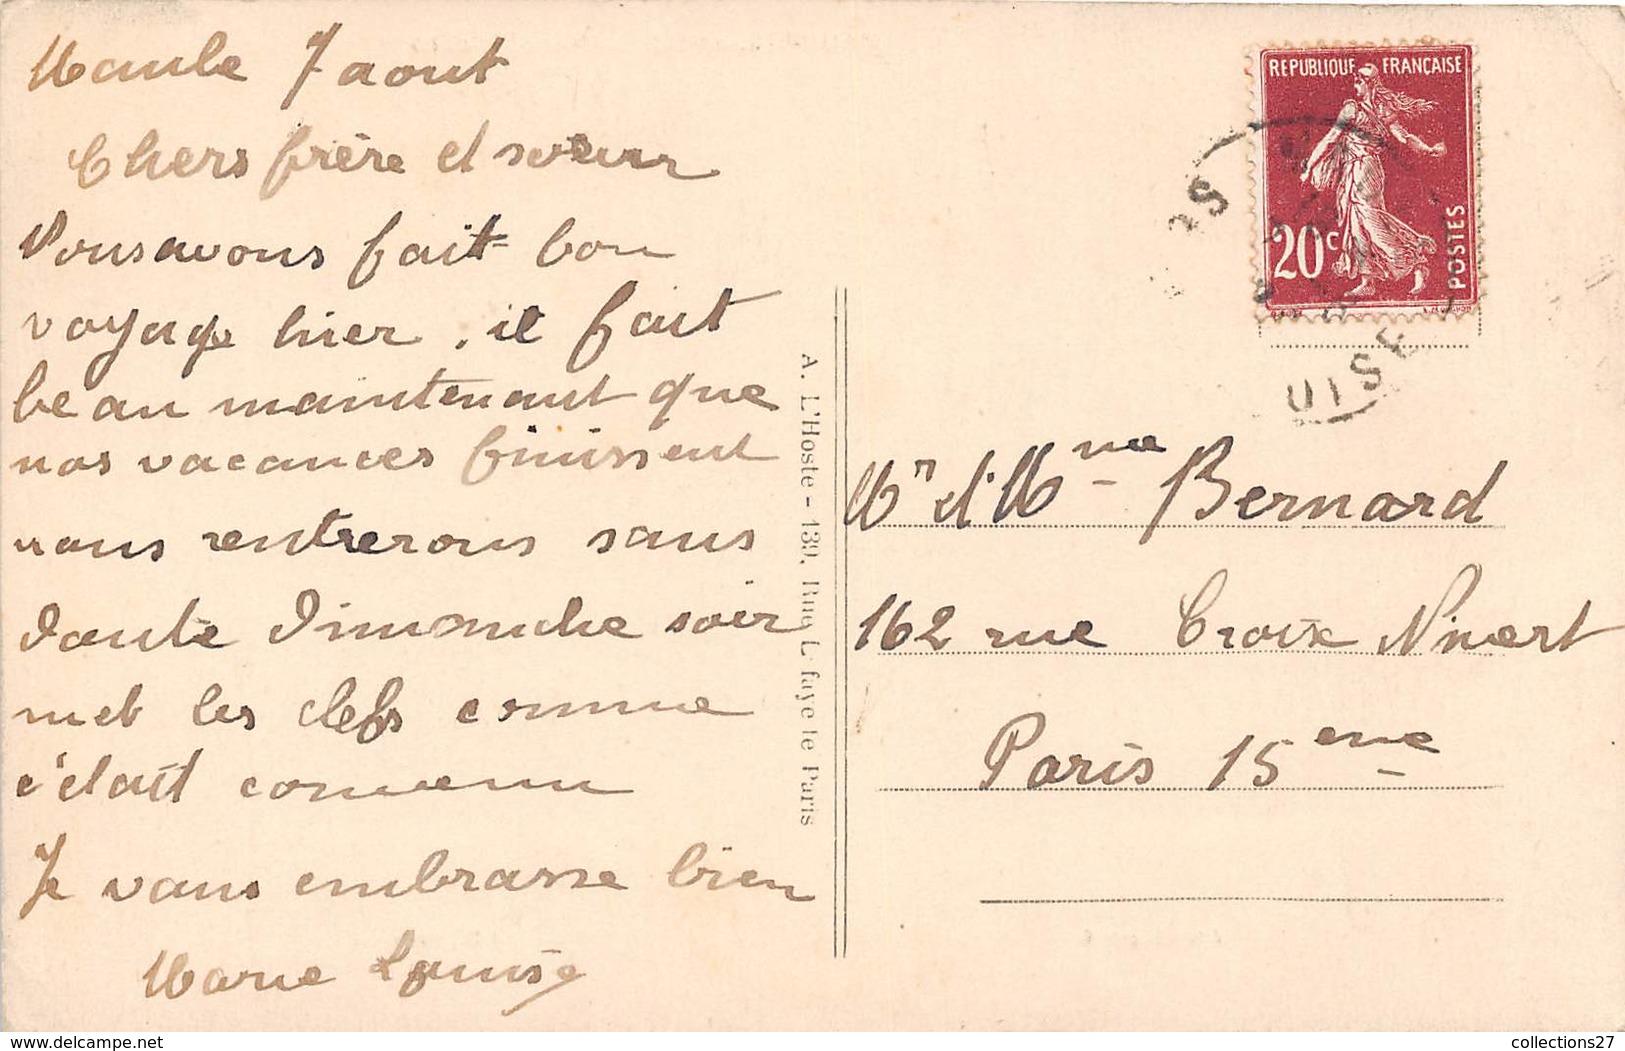 Maule 7 aout
Chers frère et soeur
Nous avons fait bon
voyage hier, il fait
beau maintenant que
nos vacances finissent
nous rentrerons sans
doute Dimanche soir
met les clefs comme
c'était convenu
Je vous embrasse bien
Marie Louise
A. L'Hoste - 139, Rue Lafayette Paris
REPUBLIQUE FRANÇAISE
20c
POSTES
OISE
Mr et Mme Bernard
162 rue Croix Nivert
Paris 15eme
collections27